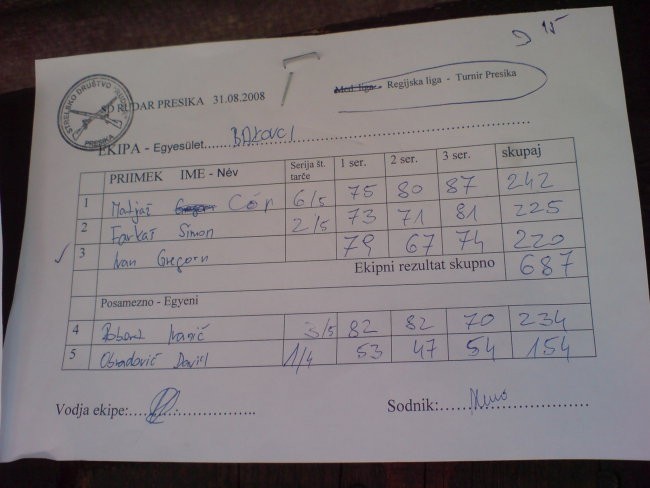 15
STRELSKO DRUŠTVO "RUDAR" PRESIKA
SD RUDAR PRESIKA 31.08.2008
Med. liga - Regijska liga - Turnir Presika
EKIPA - Egyesület
PRIIMEK IME - Név Serija št. tarče 1 ser. 2 ser. 3 ser. skupaj
1 Matjaž 6/5 75 80 87 242
2 Farkaš Simon 2/5 73 71 81 225
3 Ivan Gregorn 79 67 74 220
Ekipni rezultat skupno 687
Posamezno - Egyeni
4 3/5 82 82 70 234
5 Obradović 1/4 53 47 54 154
Vodja ekipe: Sodnik: